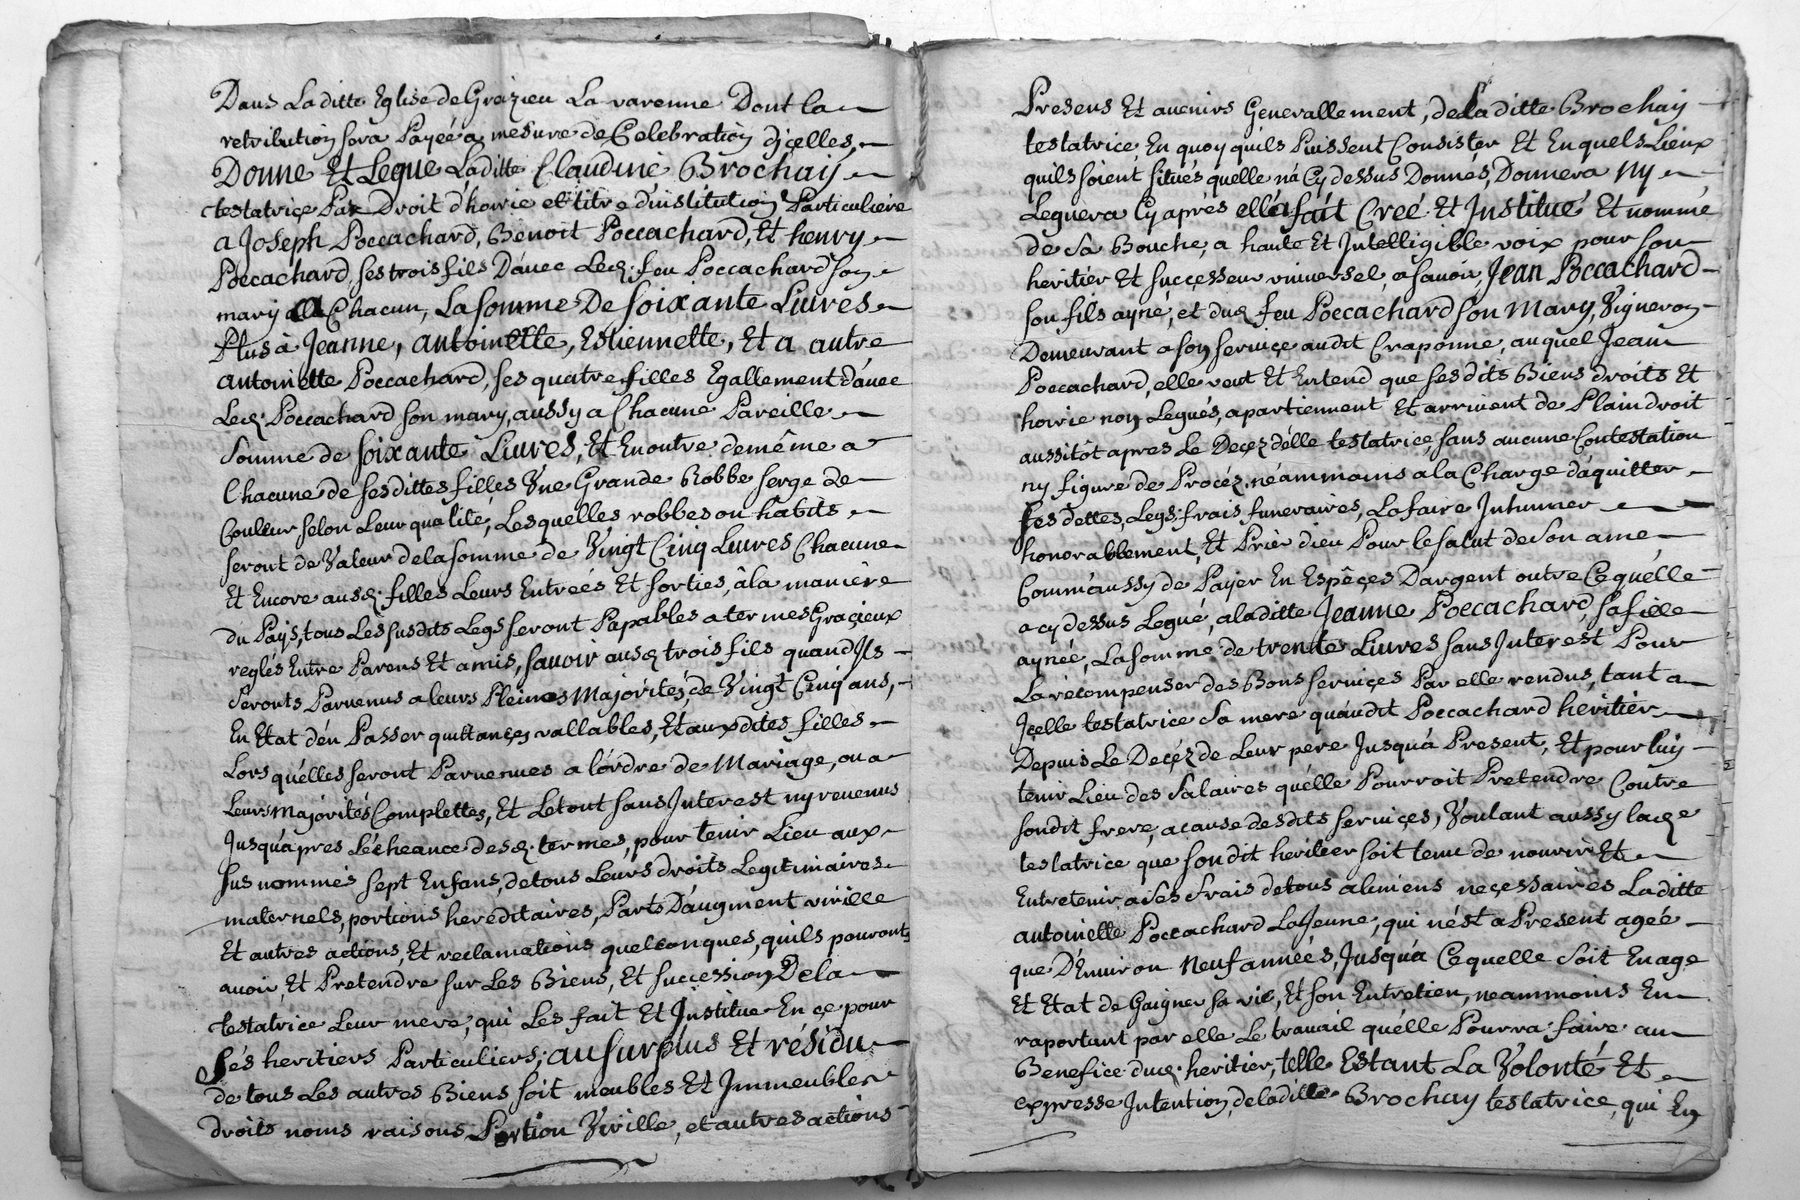 Dans Laditte Eglise de Grezieu La varenne Dont la
retribution sera Payéé a mesure de Celebration d'jcelles,
Donne Et Legue Laditte Claudine Brochaij
testatrice Par Droit d'hoirie et titre d'institution Particuliere
a Joseph Poccachard, Benoit Poccachard, Et henry
Poccachard, ses trois fils D'avec Led: feu Poccachard son
mary a Chacun, La somme De soixante Livres
Plus à Jeanne, antoinette, Estiennette, Et a autre
antoinette Poccachard, ses quatre filles Egallement d'avec
Led: Poccachard son mary, aussy a Chacune Pareille
somme de soixante Livres, Et En outre de même a
Chacune de ses dittes filles Vne Grande Robbe serge de
Couleur selon Leur qualité, Lesquelles robbes ou habits
seront de Valeur de la somme de Vingt Cinq Livres Chacune
Et Encore ausd: filles Leurs Entreés Et sorties, â la maniére
du Païs, tous Les susdits Legs seront Papables a termes Graçieux
reglés Entre Parens Et amis, savoir ausd: trois fils quand Jls
seronts Parvenus a leurs Pleines Majorités, de Vingt Cinq ans,
En Etat d'en Passer quittançes vallables, Et auxdites filles
Lors qu'elles seront Parvenues a l'ordre de Mariage, ou a
Leurs Majorités Complettes, Et Le tout sans Jnterest ny revenus
Jusqu'apres l'écheance desd: termes, pour tenir Lieu aux
sus nommés sept Enfans, de tous Leurs droits Legitimaires
maternels, portions hereditaires, Parts D'augment virille
Et autres actions, Et reclamations quelconques, quils pouront
avoir, Et Pretendre sur Les Biens, Et succession De la
testatrice Leur mere, qui Les fait Et Jnstitue En çe pour
sés heritiers Particuliers; au surplus Et résidu
de tous Les autres Biens soit meubles Et Jmmeubles
droits noms raisons Portion Virille, et autres actions
Presens Et avenirs Generallement, de laditte Brochaij
testatrice, En quoy quils Puissent Consister Et En quels Lieux
quils soient situés quelle n'a Cy dessus Donnés, Donnera Ny
Leguera Cy aprés elle a fait Creé Et Jnstitué Et nommé
de sa Bouche, a haute Et Jntelligible voix pour son
heritier Et successeur vniversel, a savoir, Jean Poccachard
son fils ayné, et dud: feu Poccachard son Mary, Vigneron
Demeurant a son serviçe audit Craponne, auquel Jean
Poccachard, elle veut Et Entend que ses dits Biens droits Et
hoirie non Legués, apartiennent Et arrivent de Plain droit
aussitôt apres Le Deçez d'elle testatrice, sans aucune Contestation
ny figure de Procés, néammoins a la Charge d'aquitter
ses dettes, Legs, frais funeraires, La faire Jnhumer
honorablement, Et Prier dieu Pour le salut de son ame
Comm'aussy de Payer En Espêçes D'argent outre Ce qu'elle
a cy dessus Legué, a laditte Jeanne Poccachard, sa fille
aynée, La somme de trente Livres sans Jnterest Pour
La recompenser des Bons serviçes Par elle rendus, tant a
Jçelle testatrice sa mere qu'audit Poccachard heritier
Depuis Le Decéz de Leur pere Jusqu'a Present, Et pour luy
tenir Lieu des salaires qu'elle Pourroit Pretendre Contre
sondit frere, a cause desdits serviçes, Voulant aussy lad:e
testatrice que son dit heritier soit tenu de nourir Et
Entretenir a ses frais de tous alimens neçessaires Laditte
antoinette Poccachard La Jeune, qui n'est a Present agée
que D'Environ Neuf années, Jusqu'a Ce quelle soit En age
Et Etat de Gaigner sa vie, Et son Entretien, neammoins En
raportant par elle Le travail qu'elle Pourra faire au
Benefice dud: heritier, telle Estant La Volonté Et
expresse Jntention, de laditte Brochay testatrice, qui En